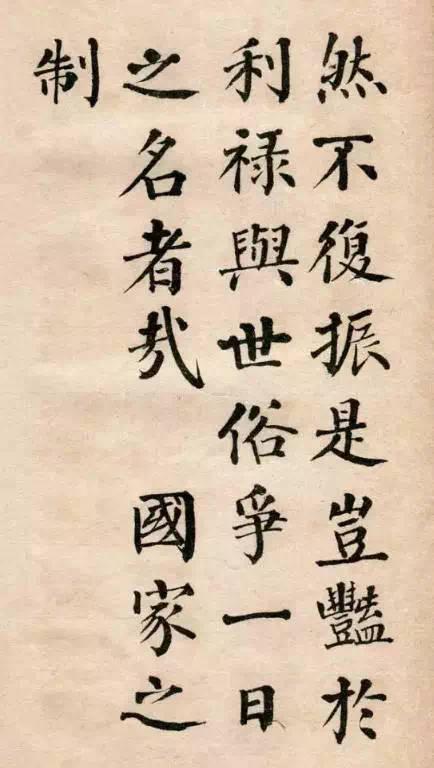 然不復振是豈豔於
利祿與世俗爭一日
之名者哉 國家之
制